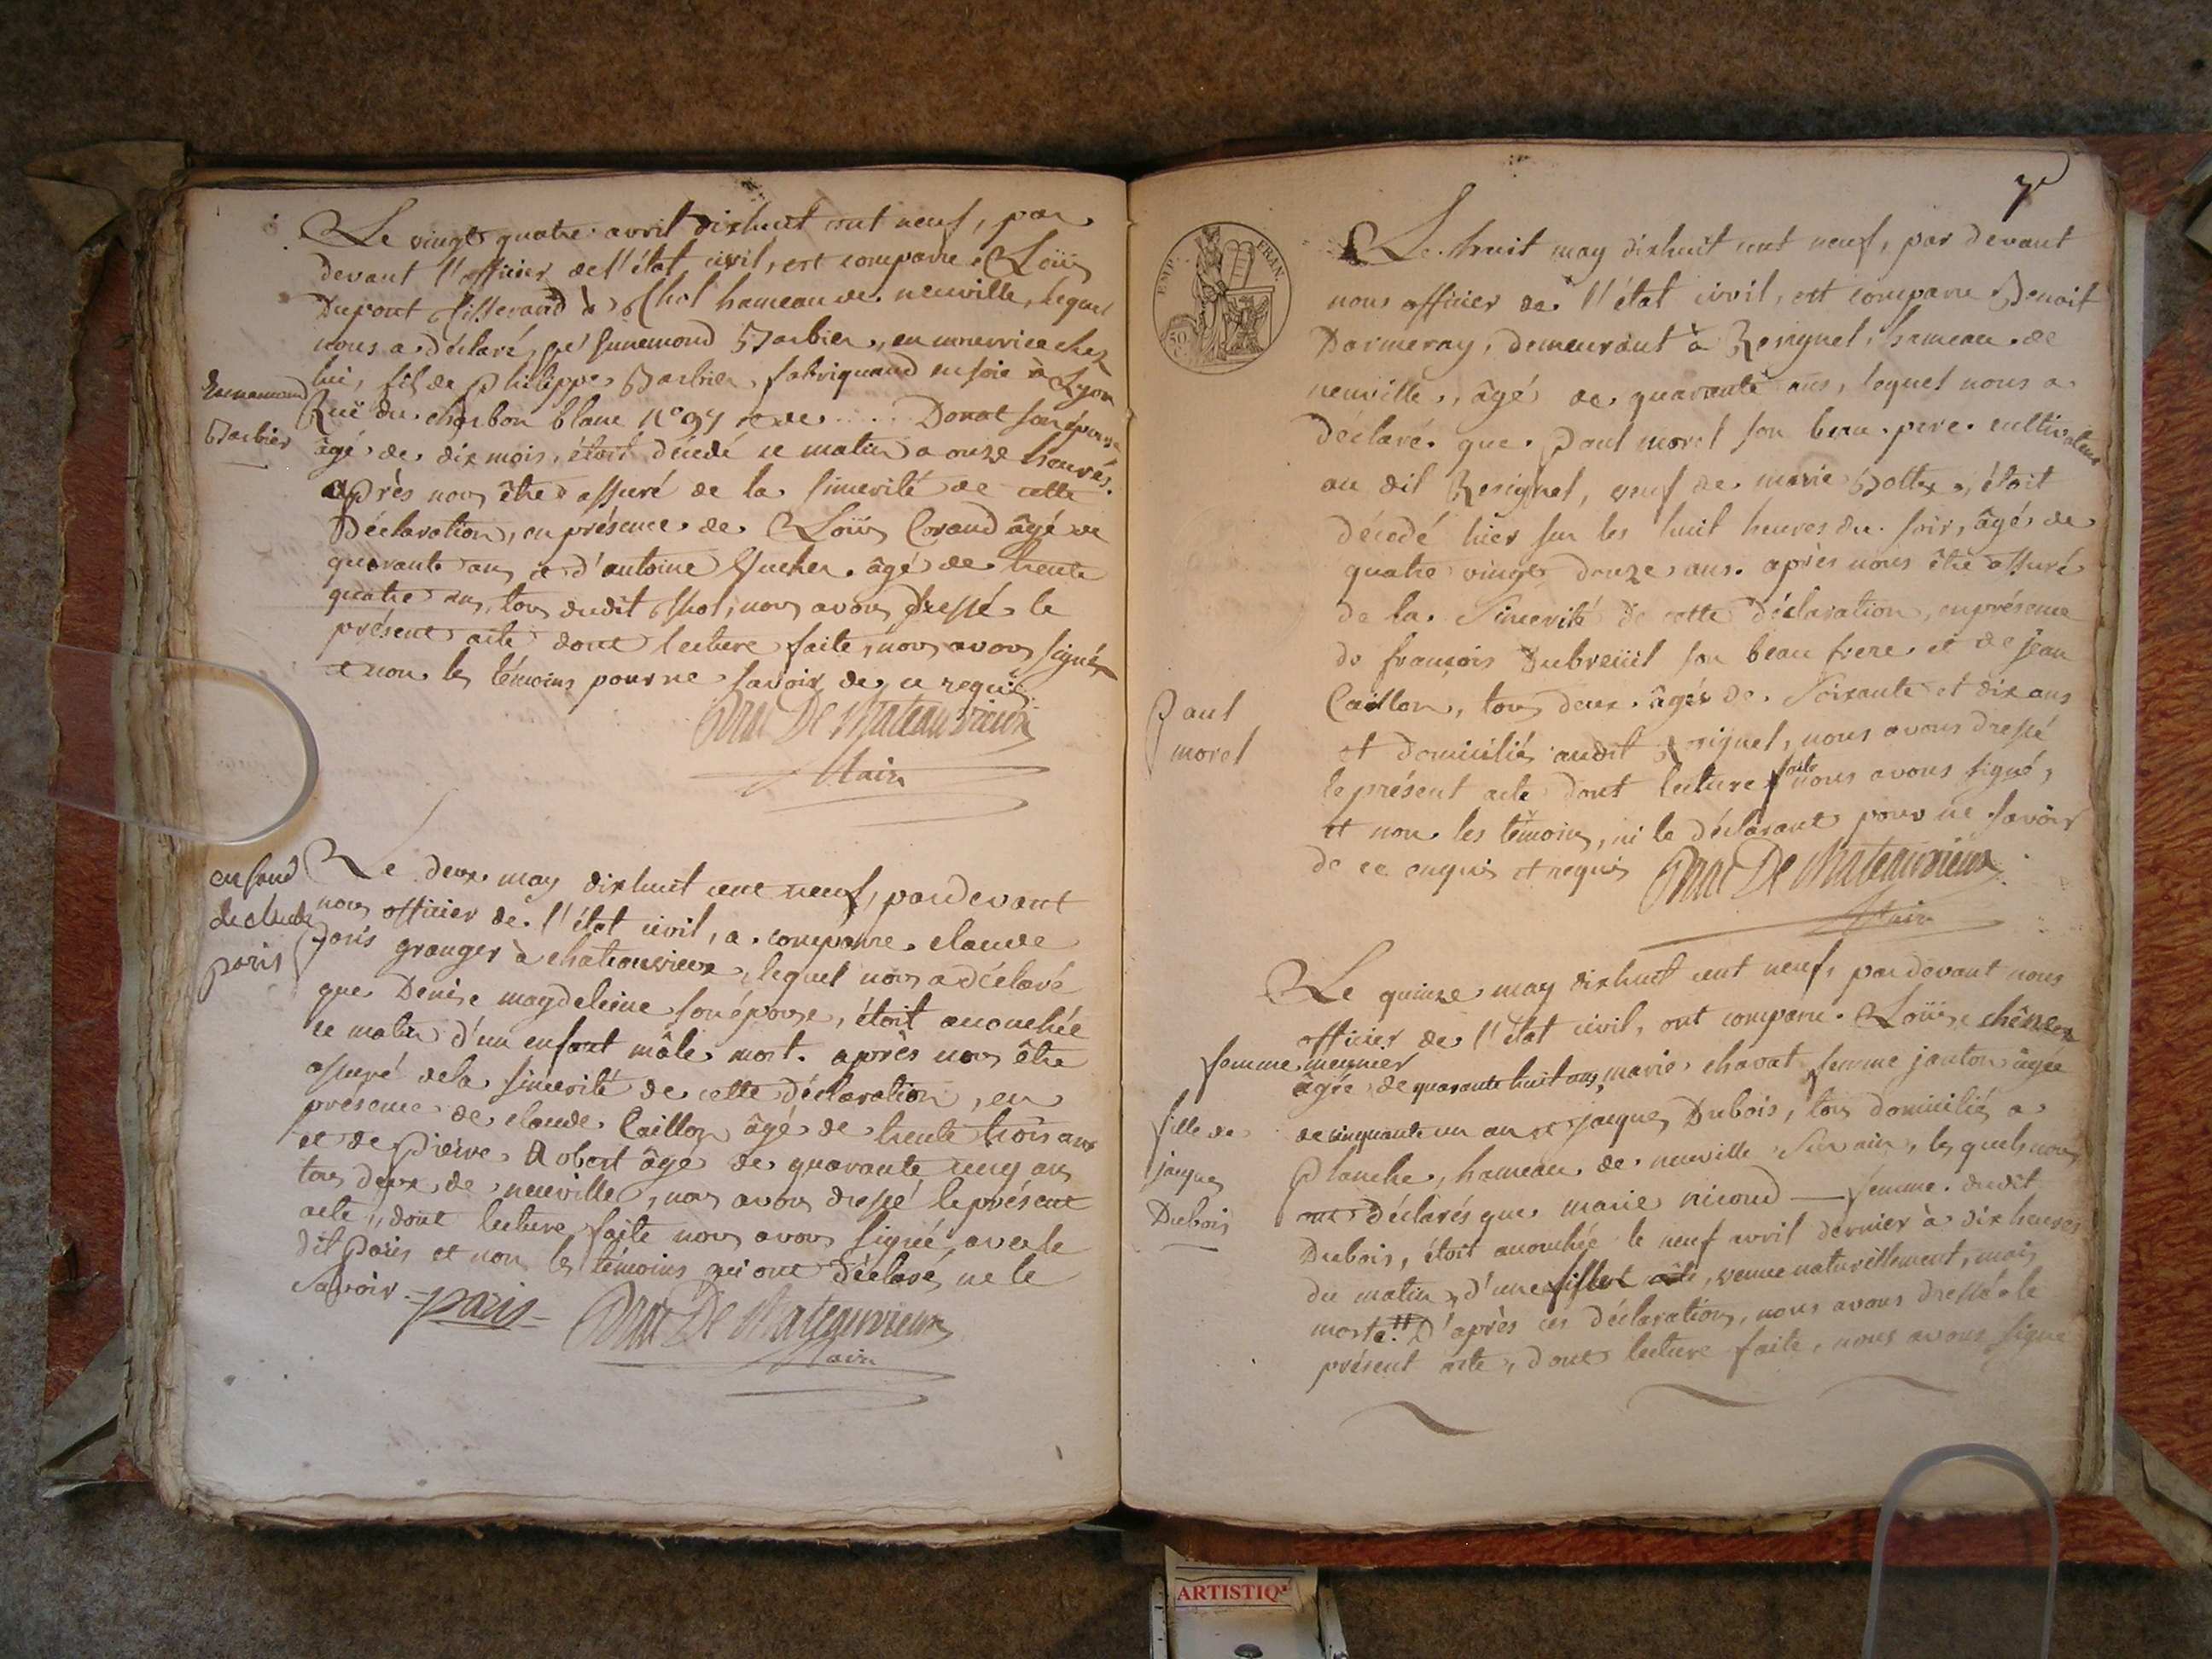 Le vingt quatre avril dixhuit cent neuf, par
devant l'officier de l'état civil, est comparu Loüis
Dupont tisserand à Thol hameau de neuville, lequel
nous a déclaré que Ennemond Barbier, en nourrice chez
lui, fils de philippe Barbier fabriquand en soie à Lyon
Ruë du charbon blanc N° 97 et de ..... Donat son épouse
âgé de dix mois, étoit décédé ce matin a onze heures.
après nous être assuré de la sincerité de cette
Déclaration, en présence de Loüis Corand âgé de
quarante ans et d'antoine âgé de trente
quatre ans, tous dudit thol, nous avons dressé le
présent acte dont lecture faite, nous avons signés
et non les témoins pour ne savoir de ce requis
Maire
Ennemond
Barbier
enfand
de claude
paris
Le deux may dixhuit cent neuf, pardevant
nous officier de l'état civil, a comparu claude
paris granger à chateauvieux, lequel nous a déclaré
que Denise magdeleine son épouse, étoit accouchée
ce matin d'un enfant mâle mort. après nous être
assuré de la sincerité de cette déclaration, en
présence de claude Caillon âgé de trente trois ans
et de pierre Robert âgé de quarante cinq ans
tous deux de neuville, nous avons dressé le présent
acte, dont lecture faite nous avons signé avec le
dit paris et non les témoins qui ont déclaré ne le
savoir. paris
Maire
7
EMP. FRAN.
50
Le huit may dixhuit cent neuf, par devant
nous officier de l'état civil, est comparu Benoit
Darmeray, demeurant à Resignel, hameau de
neuville, âgé de quarante ans, lequel nous a
déclaré que paul morel son beau pere cultivateur
au dit Resignel, veuf de marie Bottex, étoit
décedé hier sur les huit heures du soir, âgé de
quatre vingt douze ans. après nous être assuré
de la Sincerité de cette déclaration, en présence
de françois Dubreüil son beau frere et de jean
Caillon, tous deux âgés de Soixante et dix ans
et domiciliés audit Resignel, nous avons dressé
le présent acte dont lecture faite nous avons signé,
et non les témoins, ni le déclarant pour ne savoir
de ce enquis et requis
Maire
Paul
morel
Le quinze may dixhuit cent neuf, pardevant nous
officier de l'état civil, ont comparu Loüise
femme meunier
âgée de quarante huit ans, marie chavat femme janton âgée
de cinquante un an et jacques Dubois, tous domiciliés a
Planche, hameau de neuville Sur ain, lesquels nous
ont déclarés que marie nicoud — femme dudit
Dubois, étoit accouchée le neuf avril dernier à dix heures
du matin, d'une fille, venue naturellement, mais
morte. D'après ces déclarations, nous avons dressé le
présent acte, dont lecture faite, nous avons signé
fille de
jacques
Dubois
ARTISTIQ